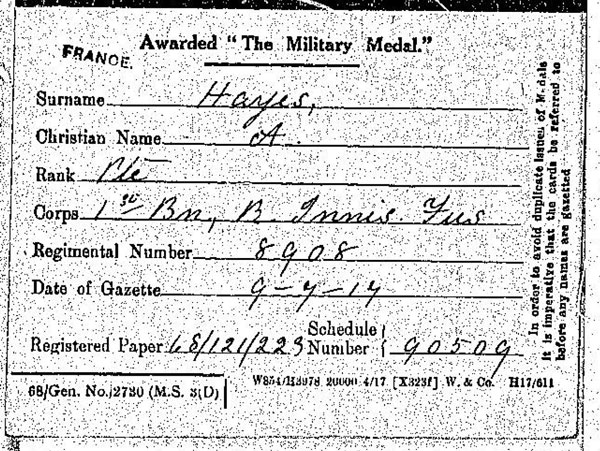 FRANCE.
Awarded "The Military Medal."
Surname Hayes,
Christian Name A.
Rank Pte
Corps 1st Bn, R. Innis. Fus
Regimental Number 8908
Date of Gazette 9-7-17
Registered Paper 68/121/223 Schedule Number 90509
68/Gen. No./2730 (M.S. 3(D)
W854/H3978 20000 4/17 [X323f] W. & Co. H17/611
In order to avoid duplicate issues of Medals
it is imperative that the cards be referred to
before any names are gazetted